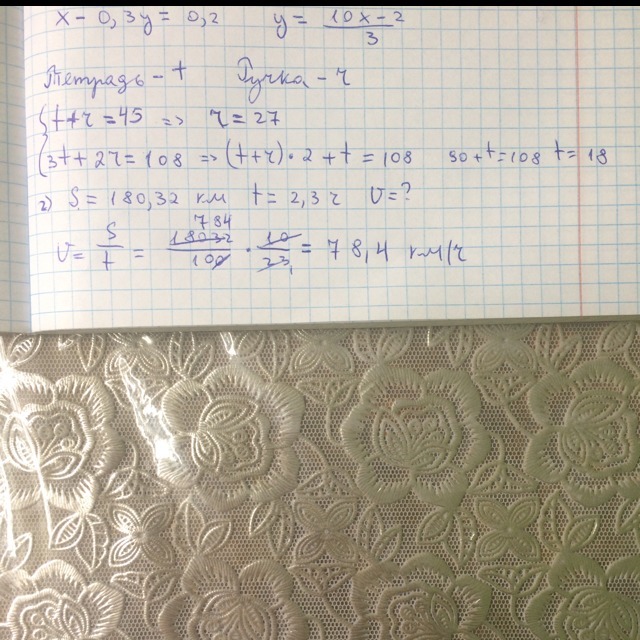 x - 0,3y = 0,2 y = (10x - 2)/3
Тетрадь - t Ручка - r
{ t + r = 45 => r = 27
{ 3t + 2r = 108 => (t + r) · 2 + t = 108 90 + t = 108 t = 18
2) S = 180,32 км t = 2,3 ч V = ?
7 84
V = S/t = 18032/100 · 10/23 = 78,4 км/ч